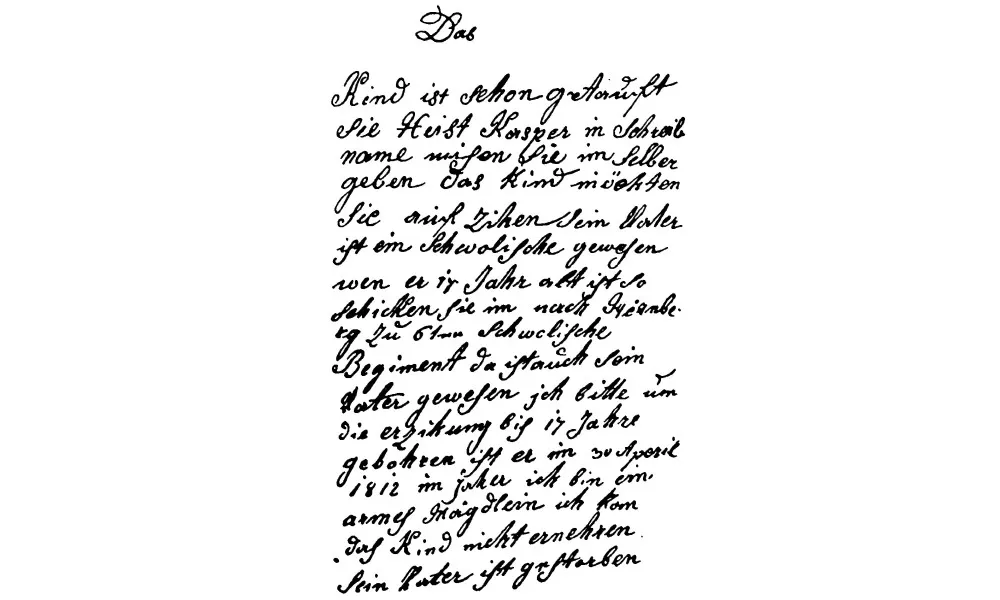 Das
Kind ist schon getauft
Sie Heist Kasper in Schreib
name misen Sie im selber
geben das Kind möchten
Sie auf Zihen Sein Vater
ist ein Schwolische gewesen
wen er 17 Jahr alt ist so
schicken Sie im nach Nirnbe-
rg zu 6ten Schwolische
Begiment da ist auch sein
Vater gewesen ich bitte um
die erzikung bis 17 Jahre
gebohren ist er im 30 Aperil
1812 im Jaher ich bin ein
armes Mägdlein ich kan
das Kind nicht ernehren
Sein Vater ist gestorben